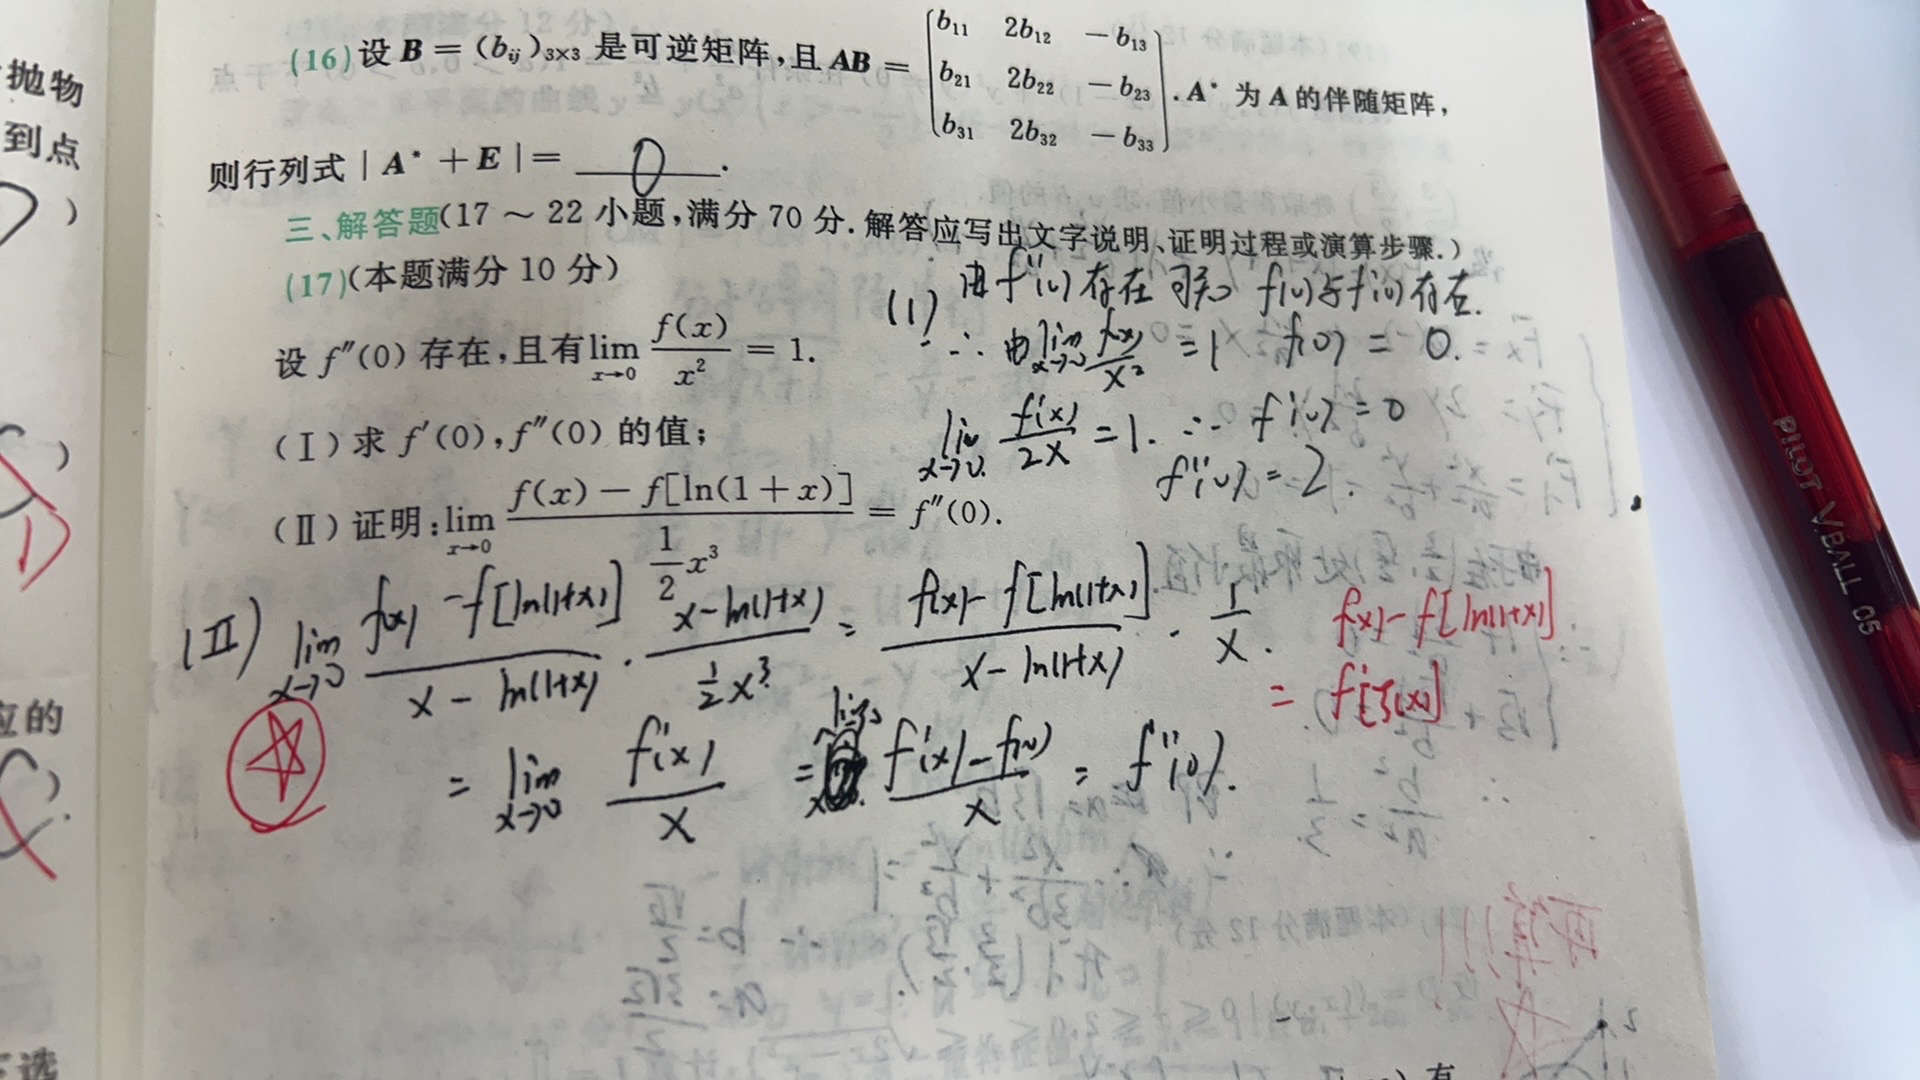 (16)设 B = (b_{ij})_{3×3} 是可逆矩阵,且 AB = \begin{pmatrix} b_{11} & 2b_{12} & -b_{13} \\ b_{21} & 2b_{22} & -b_{23} \\ b_{31} & 2b_{32} & -b_{33} \end{pmatrix}. A* 为 A 的伴随矩阵,
则行列式 | A* + E | = 0 .
三、解答题(17 ~ 22 小题,满分 70 分.解答应写出文字说明、证明过程或演算步骤.)
(17)(本题满分 10 分)
设 f″(0) 存在,且有 lim_{x→0} \frac{f(x)}{x^2} = 1.
(Ⅰ)求 f′(0), f″(0) 的值;
(Ⅱ)证明: lim_{x→0} \frac{f(x) - f[ln(1+x)]}{\frac{1}{2}x^3} = f″(0).
(1) 由 f″(0) 存在 可知 f(0)与f′(0)存在.
∴ 由 lim_{x→0} \frac{f(x)}{x^2} = 1 f(0) = 0.
lim_{x→0} \frac{f′(x)}{2x} = 1. ∴ f′(0) = 0
f″(0) = 2.
(Ⅱ) lim_{x→0} \frac{f(x) - f[ln(1+x)]}{x - ln(1+x)} · \frac{x - ln(1+x)}{\frac{1}{2}x^3} = \frac{f(x) - f[ln(1+x)]}{x - ln(1+x)} · \frac{1}{x}.
= lim_{x→0} \frac{f′(x)}{x} = lim_{x→0} \frac{f′(x) - f(0)}{x} = f″(0).
f(x) - f[ln(1+x)]
= f′[ξ(x)]
抛物
到点
)
)
应的
)
选
PILOT V BALL 05
有